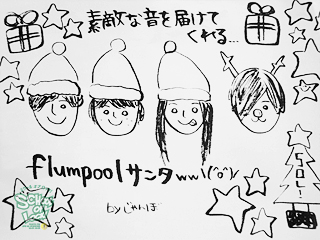 素敵な音を届けて
くれる...
flumpoolサンタww\(^o^)/
SOL!
byじゃんぼ